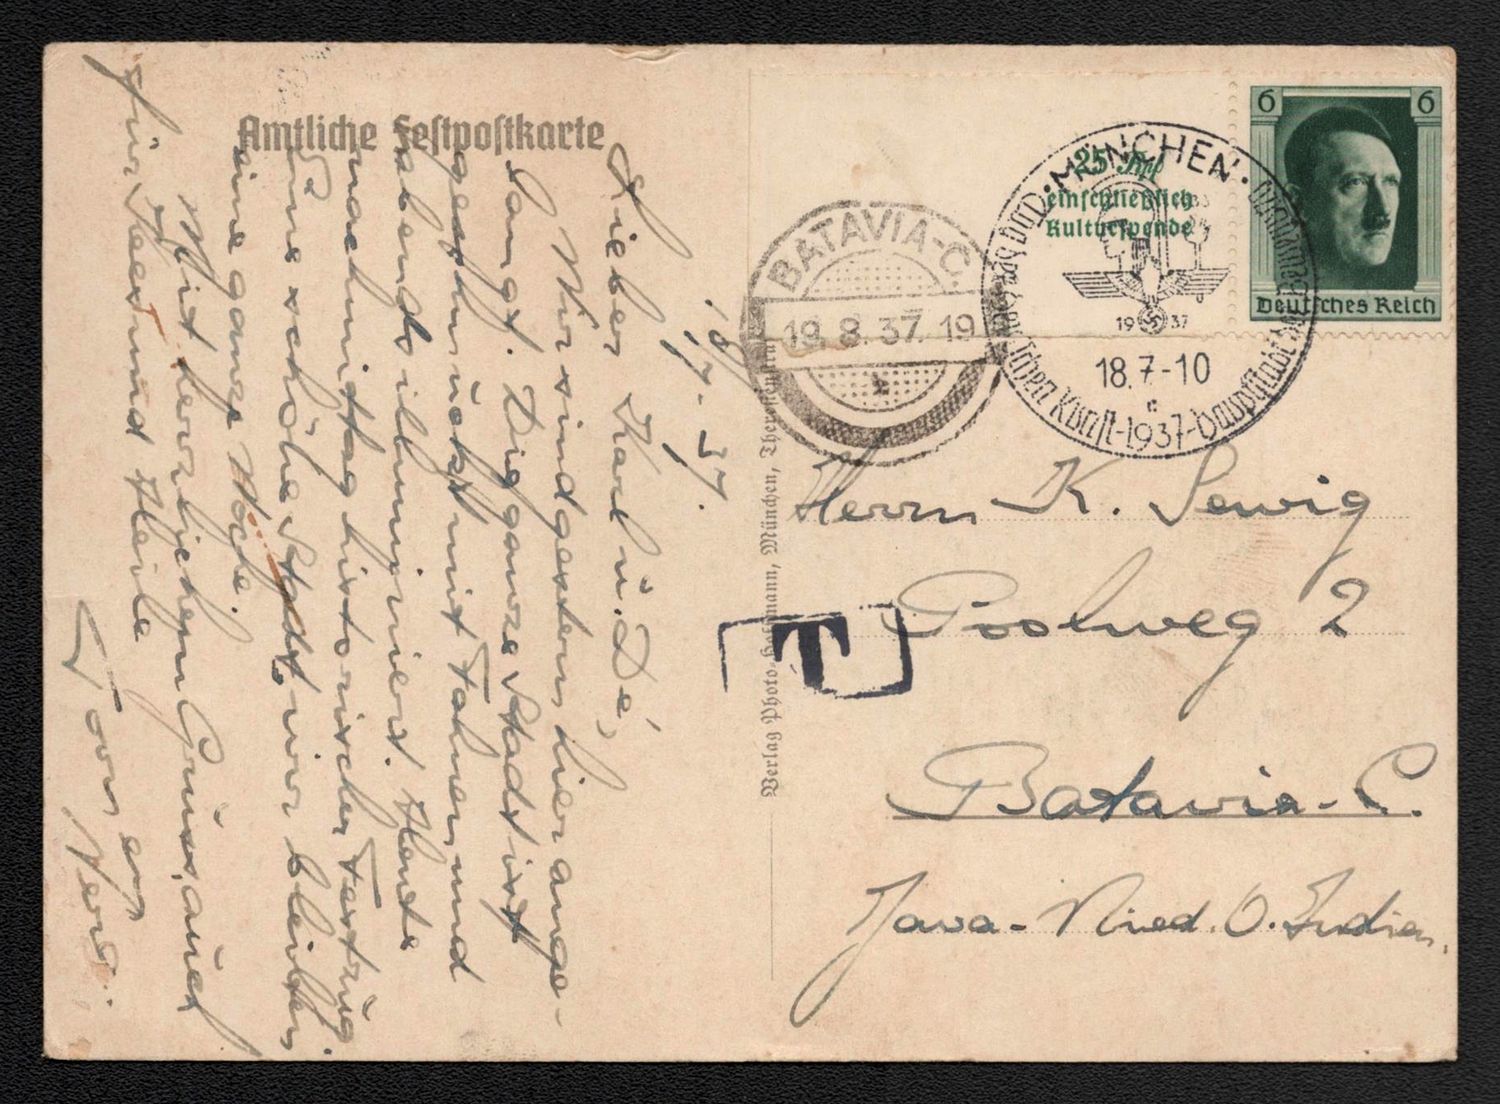 Amtliche Festpostkarte
18. 7. 37.
Lieber Karl u. Dé,
Wir sind gestern hier ange-
langt. Die ganze Stadt ist
geschmückt mit Fahnen und
abends illuminiert. Heute
nachmittag historischer Festzug.
Eine schöne Stadt, wir bleiben
eine ganze Woche.
Mit herzlichem Gruss, auch
für Hermund Heile
Verlag Photo-Hoffmann, München, Theresienstr.
BATAVIA-C.
19. 8. 37. 19
25 Rpf
einschließlich
Kulturspende
MÜNCHEN
Tag der Deutschen Kunst-1937-Hauptstadt der Bewegung
1937
18.7-10
6
6
Deutsches Reich
T
Herrn K. Sewig
Poolweg 2
Batavia-C.
Java- Nied. O. Indien.